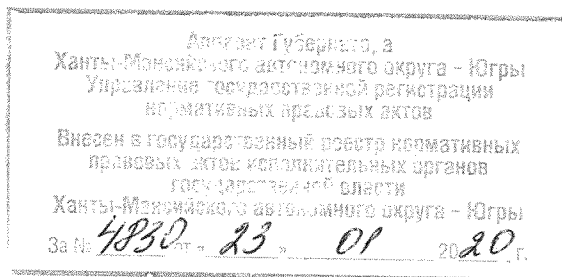 Аппарат Губернатора
Ханты-Мансийского автономного округа – Югры
Управление государственной регистрации
нормативных правовых актов
Внесен в государственный реестр нормативных
правовых актов исполнительных органов
государственной власти
Ханты-Мансийского автономного округа – Югры
За № 4830 от « 23 » 01 2020 г.